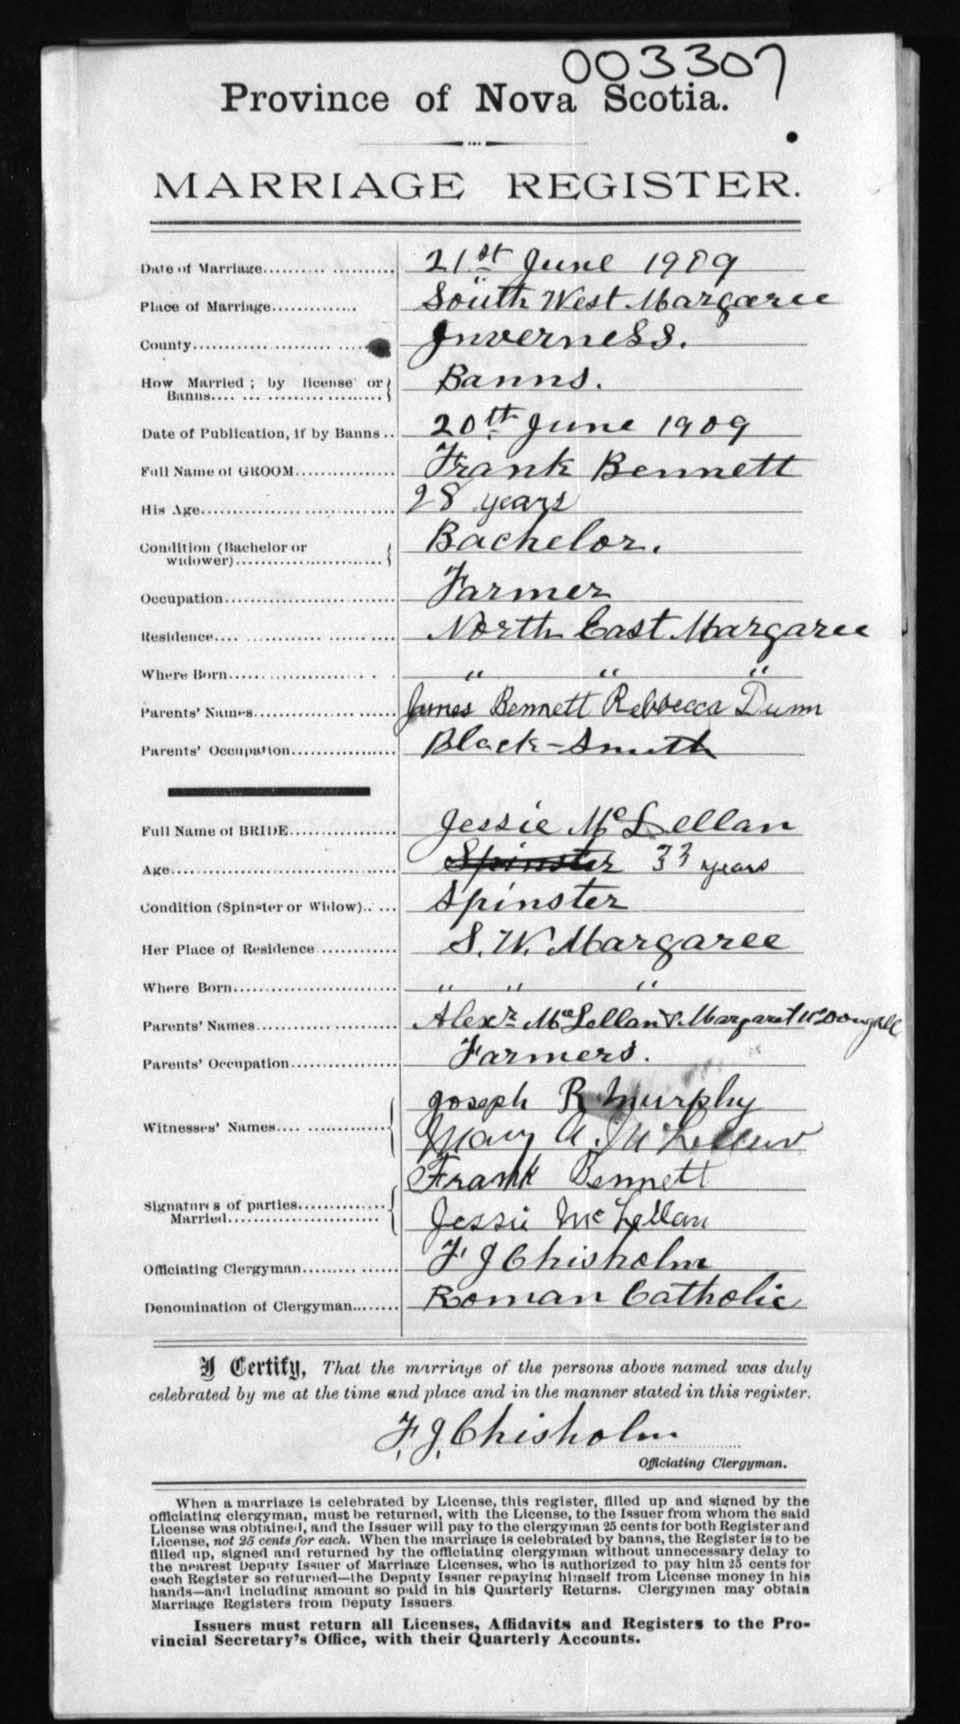 003307
Province of Nova Scotia.
MARRIAGE REGISTER.
Date of Marriage.................... 21st June 1909
Place of Marriage............. South West Margaree
County.................... Inverness.
How Married ; by license or
Banns.................... Banns.
Date of Publication, if by Banns.. 20th June 1909
Full Name of GROOM............... Frank Bennett
His Age.............................. 28 years
Condition (Bachelor or
widower)...................... Bachelor.
Occupation.......................... Farmer
Residence.................... North East Margaree
Where Born.................... " " "
Parents' Names.................... James Bennett Rebbecca Dunn
Parents' Occupation................ Black-Smith
Full Name of BRIDE................. Jessie McLellan
Age.................................. Spinster 33 years
Condition (Spinster or Widow)..... Spinster
Her Place of Residence............ S. W. Margaree
Where Born......................... " " "
Parents' Names.................... Alexr McLellan & Margaret McDougall
Parents' Occupation................ Farmers.
Witnesses' Names.................... Joseph R Murphy
Mary A. McLellan
Frank Bennett
Signatures of parties..............
Married........................ Jessie McLellan
Officiating Clergyman............... F J Chisholm
Denomination of Clergyman....... Roman Catholic
I Certify, That the marriage of the persons above named was duly
celebrated by me at the time and place and in the manner stated in this register.
F. J. Chisholm
Officiating Clergyman.
When a marriage is celebrated by License, this register, filled up and signed by the
officiating clergyman, must be returned, with the License, to the Issuer from whom the said
License was obtained, and the Issuer will pay to the clergyman 25 cents for both Register and
License, not 25 cents for each. When the marriage is celebrated by banns, the Register is to be
filled up, signed and returned by the officiating clergyman without unnecessary delay to
the nearest Deputy Issuer of Marriage Licenses, who is authorized to pay him 25 cents for
each Register so returned—the Deputy Issuer repaying himself from License money in his
hands—and including amount so paid in his Quarterly Returns. Clergymen may obtain
Marriage Registers from Deputy Issuers
Issuers must return all Licenses, Affidavits and Registers to the Pro-
vincial Secretary's Office, with their Quarterly Accounts.